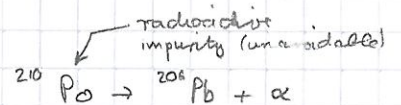 radioactive
impurity (unavoidable)
²¹⁰Po → ²⁰⁶Pb + α